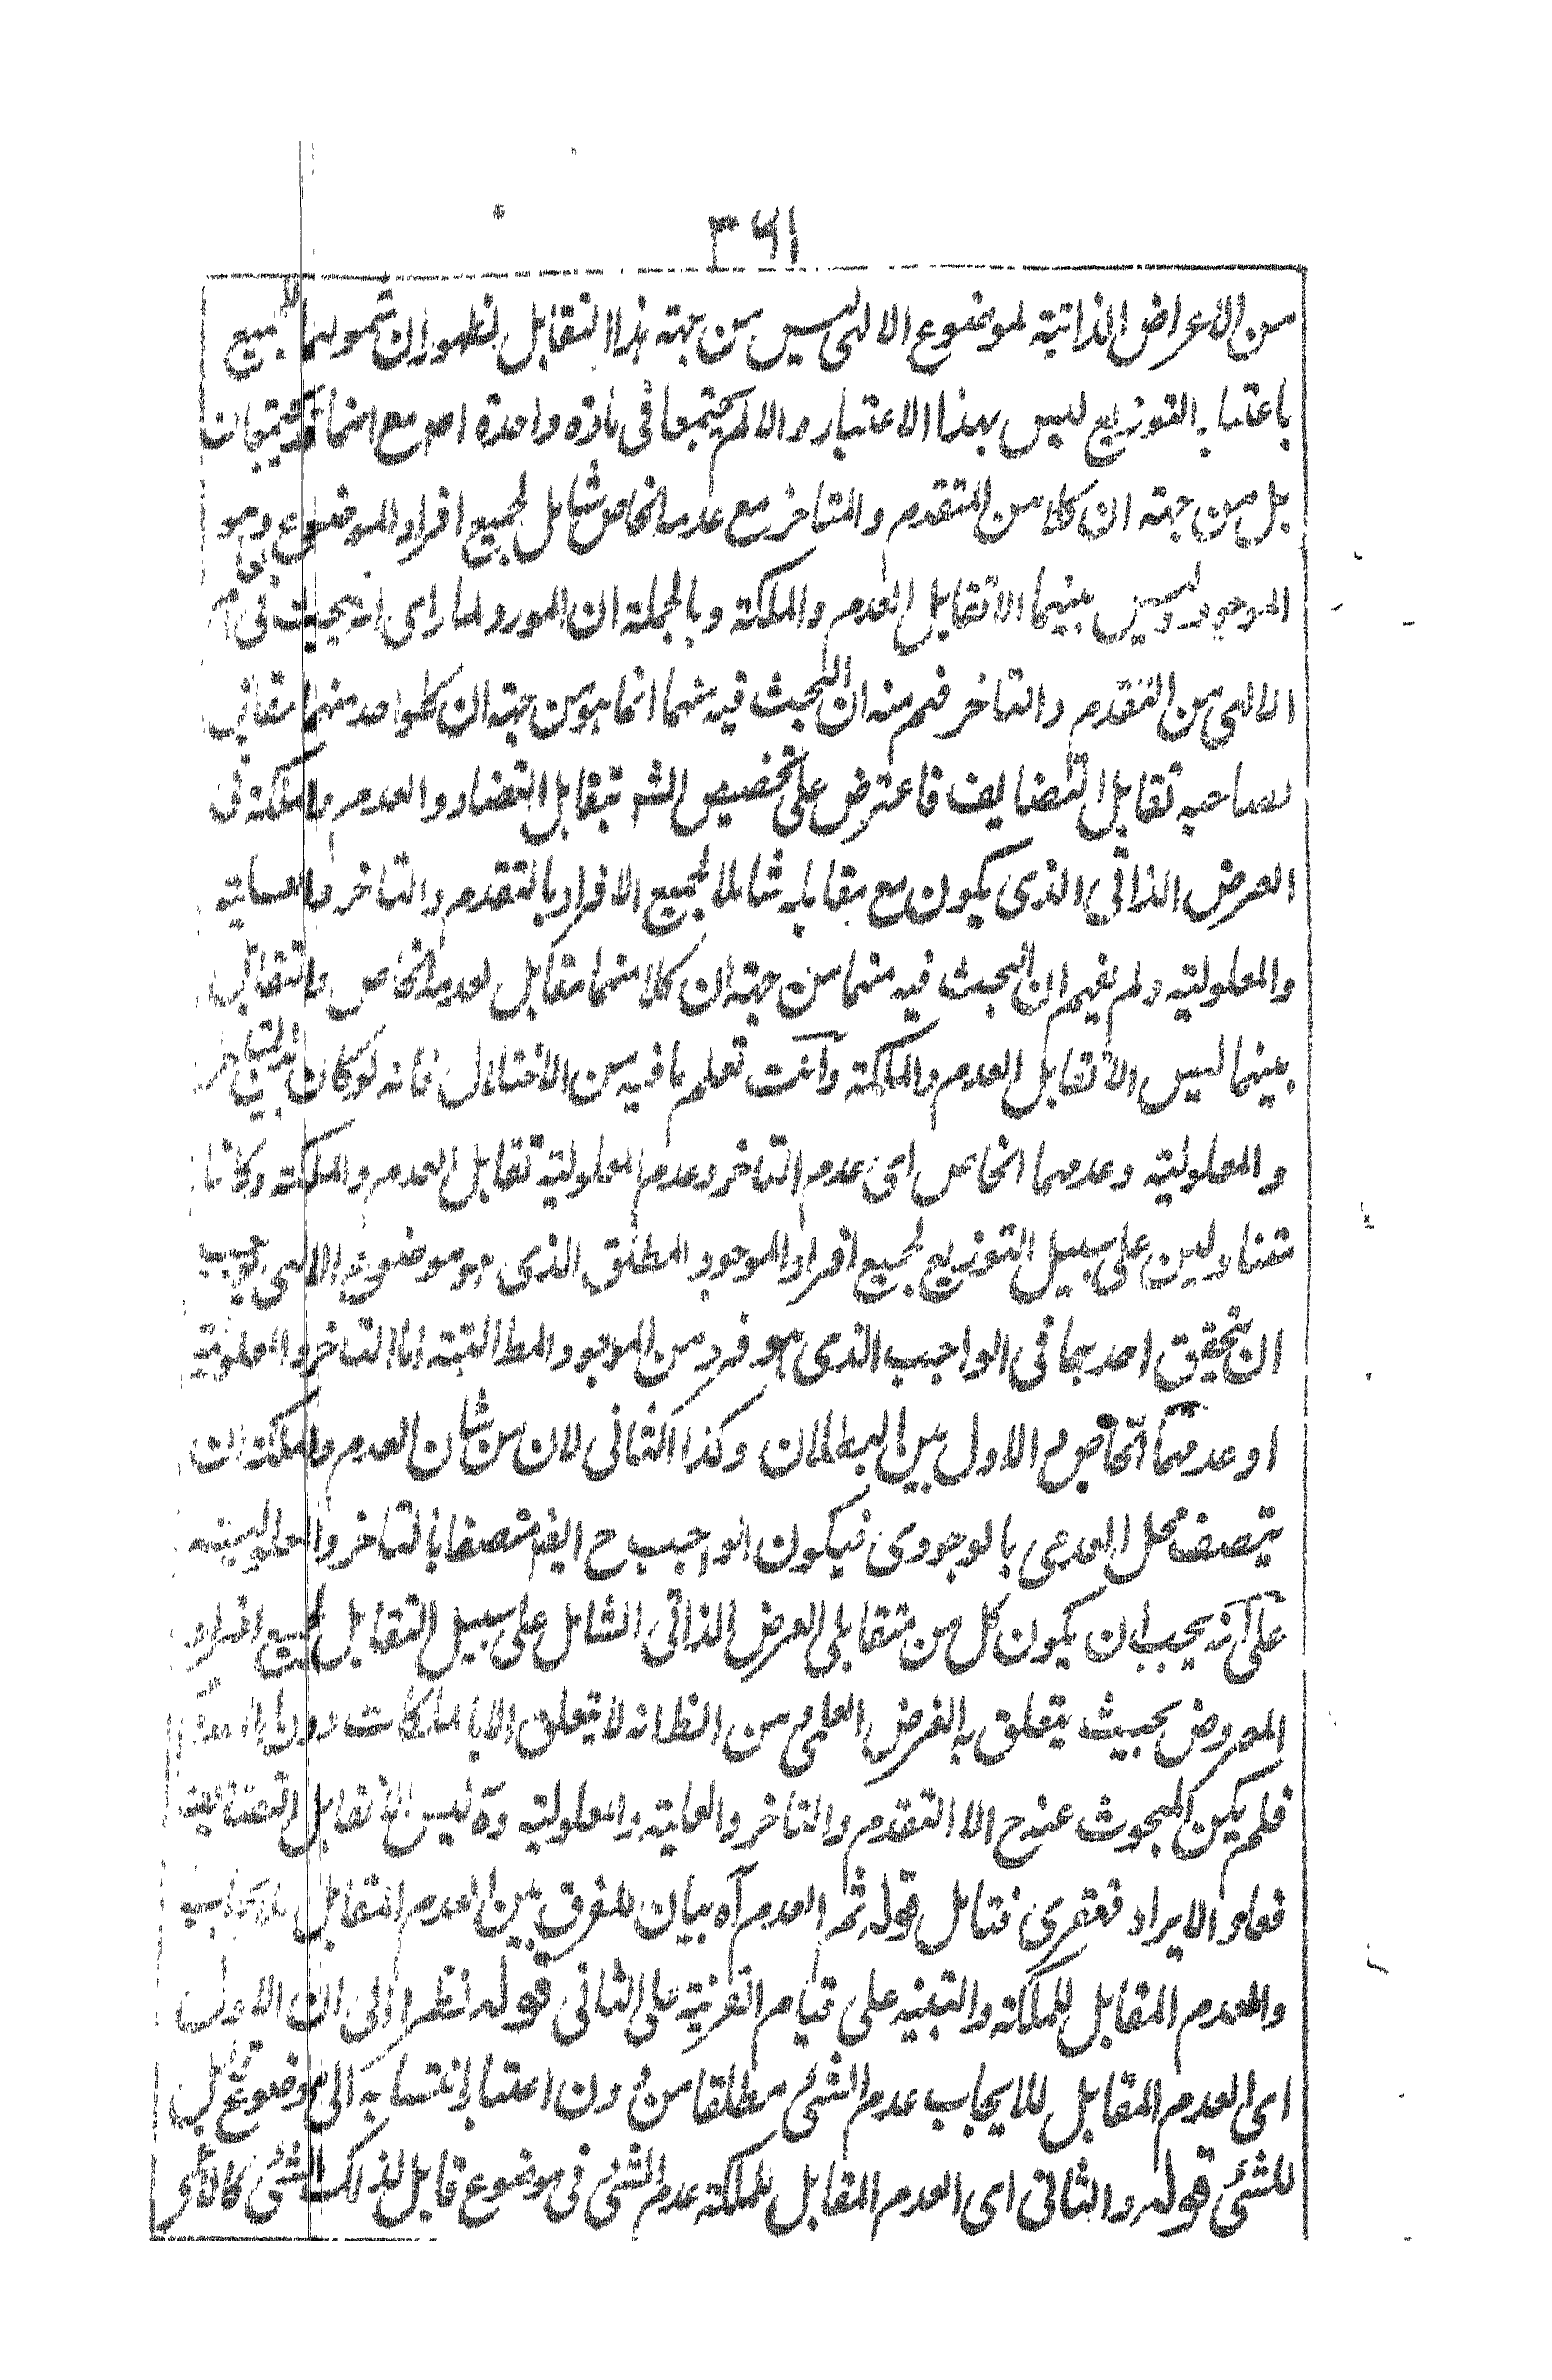 ٣٦١
من الاعراض الذاتية لموضوع الالهى ليس من جهة هذا التقابل لظهور ان شمولهما لجميع
باعتبار التوزيع ليس بهذا الاعتبار والا لم يجتمعا فى مادة واحدة اصلا مع انهما قد يجتمعان
بل من جهة ان كلا من المتقدم والمتاخر مع عدمه الخاص شامل لجميع افراد الموضوع وهو
الموجود وليس بينهما الا تقابل العدم والملكة وبالجملة ان المورد لما راى انه يبحث فى
الالهى من التقدم والتاخر فهم منه ان البحث فيه منهما انما هو من جهة ان كلواحد منهما مقابل
لصاحبه تقابل التضايف فاعترض على تخصيص الشه تقابل التضاد والعدم والملكة فى
العرض الذاتى الذى يكون مع مقابله شاملا لجميع الافراد بالتقدم والتاخر والعلية
والمعلولية ولم يفهم ان البحث فيه منهما من جهة ان كلا منهما مقابل لعدمه الخاص والتقابل
بينهما ليس الا تقابل العدم والملكة وانت تعلم ما فيه من الاختلال فانه لو كان بين التاخر
والمعلولية وعدمهما الخاص اى عدم التاخر وعدم المعلولية تقابل العدم والملكة وكانا
متناولين على سبيل التوزيع لجميع افراد الموجود المطلق الذى هو موضوع الالهى يجب
ان يتحقق احدهما فى الواجب الذى هو فرد من الموجود المط البتة اما التاخر والمعلولية
او عدمهما الخاص والاول بين البطلان وكذا الثانى لان من شان العدم والملكة ان
يتصف محل العدمى بالوجودى فيكون الواجب ح ايضا متصفا بالتاخر والمعلولية
على انه يجب ان يكون كل من متقابلى العرض الذاتى الشامل على سبيل التقابل لجميع افراد
المعروض بحيث يتعلق به الغرض العلمى من الظ انه لا يتعلق الا بالملكات دون
فلم يكن المبحوث عنه ح الا التقدم والتاخر والعلية والمعلولية وة ليس الا تقابل التضايف
فعاد الايراد فعقرى فتامل قوله ثم العدم آه بيان للفرق بين العدم المقابل للايجاب
والعدم المقابل للملكة والتبنيه على قيام القرنية على الثانى قوله نظرا الى ان الاول
اى العدم المقابل للايجاب عدم الشئ مطلقا من دون اعتبار انتسابه الى موضوع قابل
للشئ قوله والثانى اى العدم المقابل للملكة عدم الشئ فى موضوع قابل لذلك الشئ كالاعمى